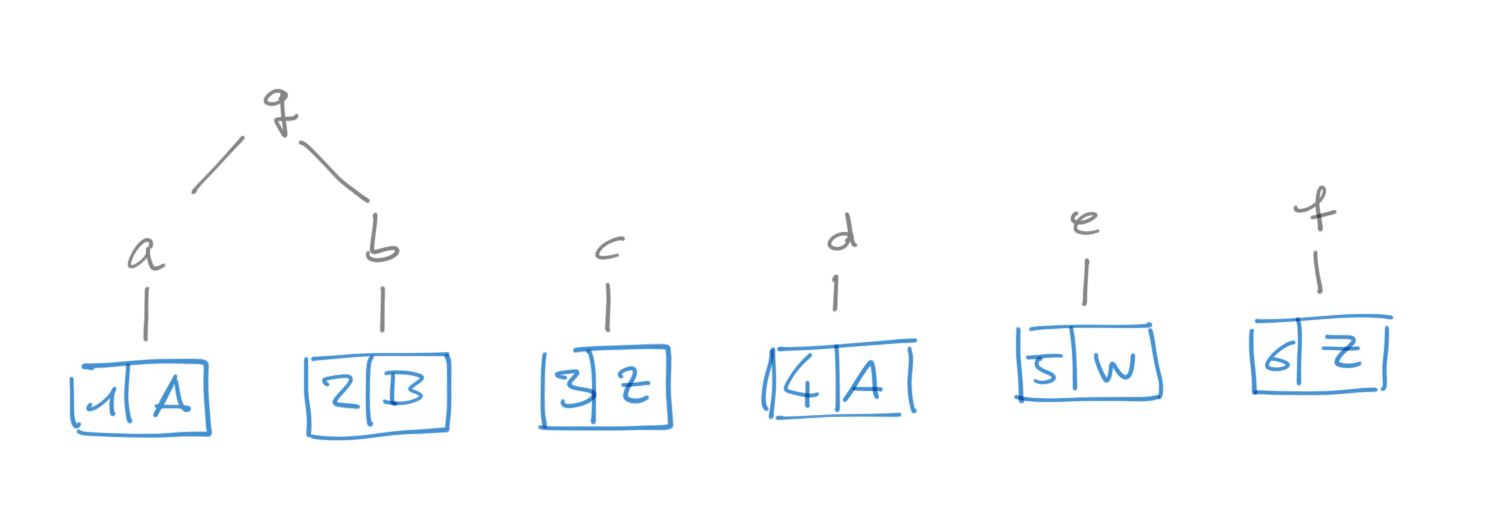 g
a b c d e f
1 A 2 B 3 Z 4 A 5 W 6 Z